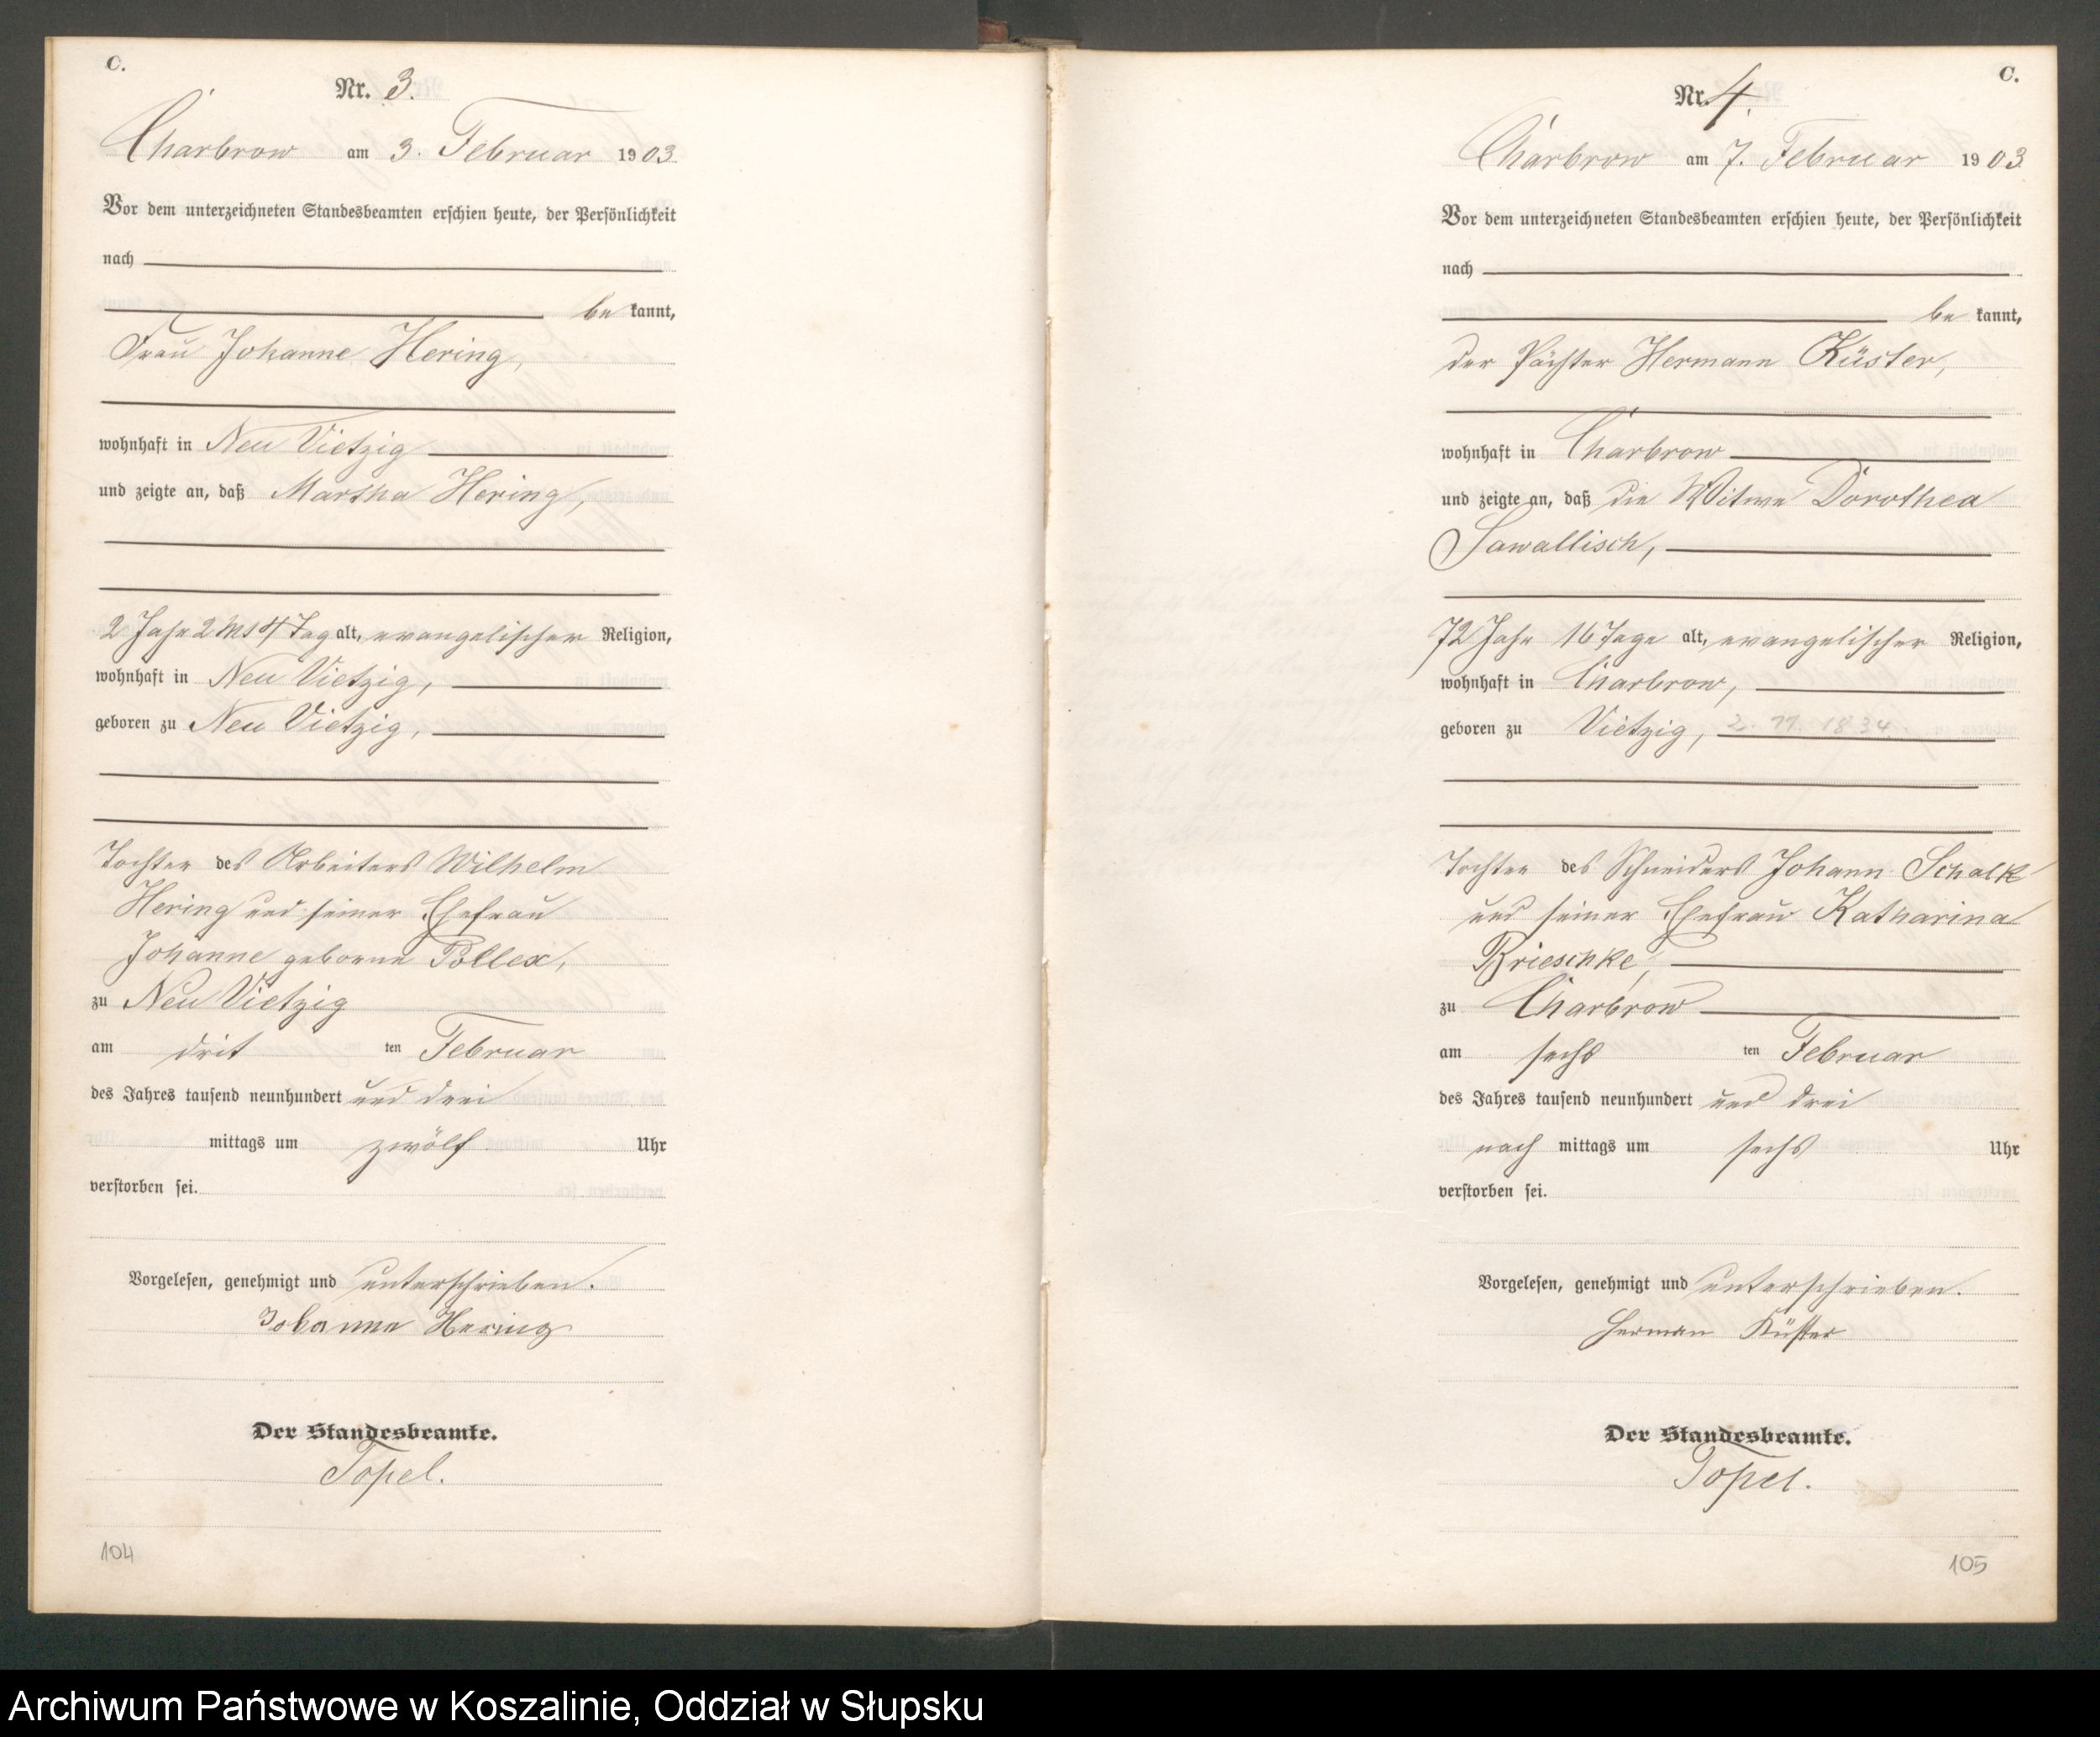 C.
Nr. 3.
Charbrow am 3. Februar 1903
Vor dem unterzeichneten Standesbeamten erschien heute, der Persönlichkeit
nach
be kannt,
Frau Johanne Hering,
wohnhaft in Neu Vietzig
und zeigte an, daß Martha Hering,
2 Jahr 2 Mt 4 Tag alt, evangelischer Religion,
wohnhaft in Neu Vietzig,
geboren zu Neu Vietzig,
Tochter des Arbeiters Wilhelm
Hering und seiner Ehefrau
Johanne geborne Pollex,
zu Neu Vietzig
am drit ten Februar
des Jahres tausend neunhundert und drei
mittags um zwölf Uhr
verstorben sei.
Vorgelesen, genehmigt und unterschrieben.
Johanne Hering
Der Standesbeamte.
Topel.
104
C.
Nr. 4.
Charbrow am 7. Februar 1903
Vor dem unterzeichneten Standesbeamten erschien heute, der Persönlichkeit
nach
be kannt,
der Pächter Hermann Küster,
wohnhaft in Charbrow
und zeigte an, daß die Witwe Dorothea
Sawallisch,
72 Jahr 16 Tage alt, evangelischer Religion,
wohnhaft in Charbrow,
geboren zu Vietzig, 2. 11. 1834
Tochter des Schneiders Johann Schalk
und seiner Ehefrau Katharina
Brieschke,
zu Charbrow
am sechs ten Februar
des Jahres tausend neunhundert und drei
nach mittags um sechs Uhr
verstorben sei.
Vorgelesen, genehmigt und unterschrieben.
Herman Küster
Der Standesbeamte.
Topel.
105
Archiwum Państwowe w Koszalinie, Oddział w Słupsku